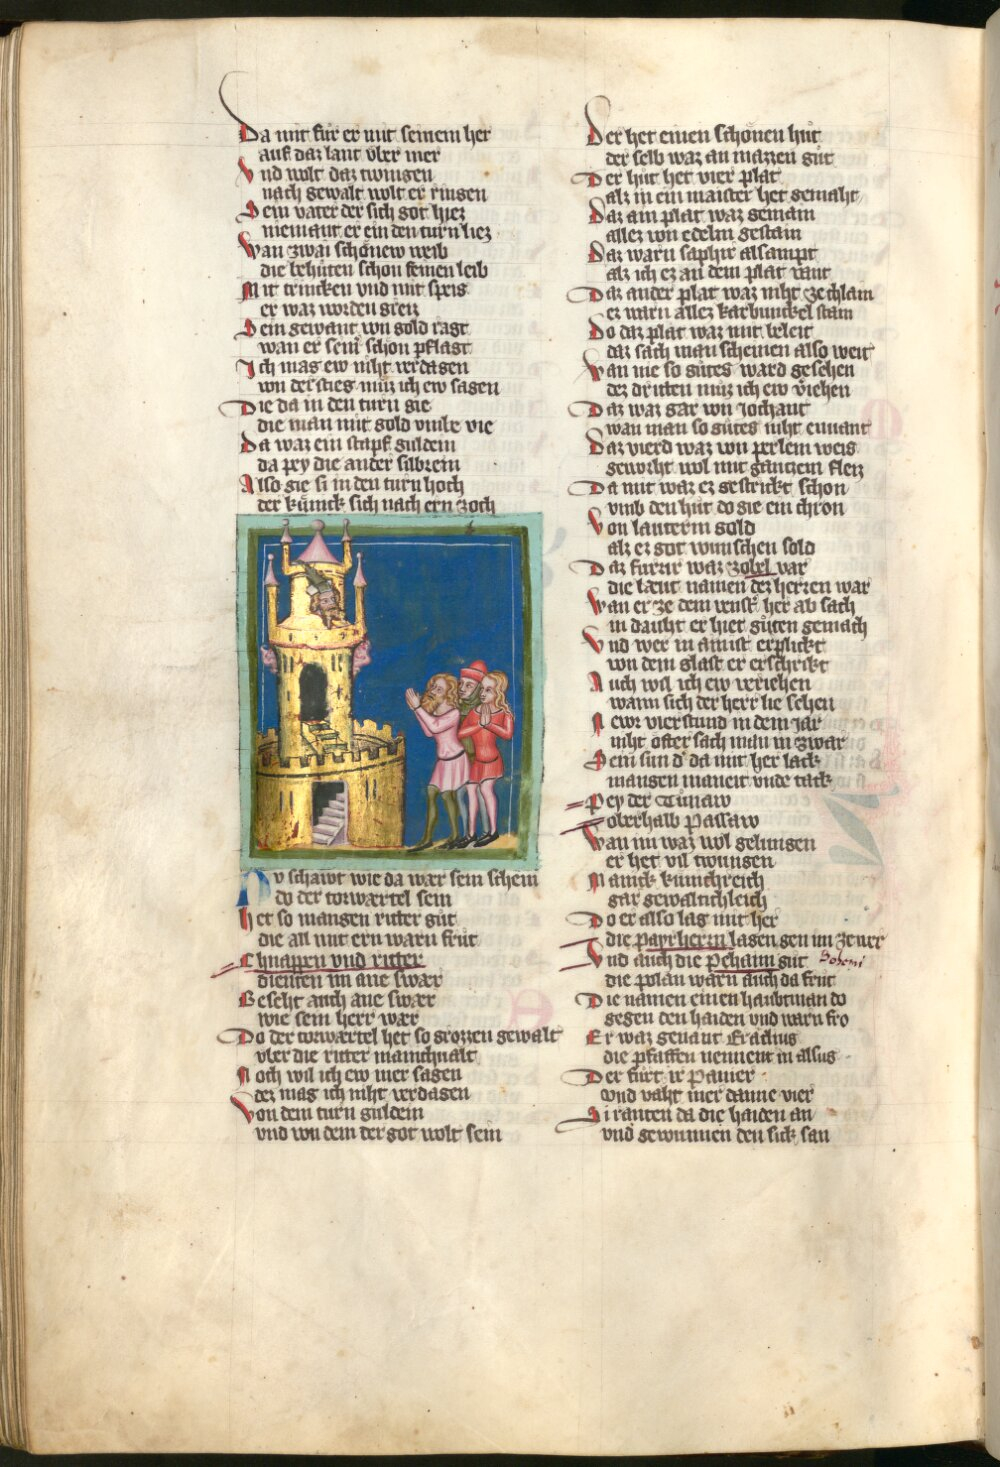 Da mit fur er mit seinem her
auf daz lant vber mer
Vnd wolt daz twingen
nach gewalt wolt er ringen
Sein vater der sich got hiez
niemant er ein den turn liez
Wan zwai schönew weib
die behüten schon seinen leib
Mit trincken vnd mit speis
er waz worden greis
Sein gewant von gold ragt
wan er sein schon pflagt
Ich mag ew niht verdagen
von der stieg muz ich ew sagen
Die da in den turn gie
die man mit gold vmbe vie
Da waz ein stapf guldein
da pey die ander silbrein
Also gie si in den turn hoch
der künick sich nach ern zoch
Nv schawt wie da wær sein schein
do der torwærtel sein
Het so mangen ritter gůt
die all mit ern warn frůt
Chnappen vnd ritter
dienten im ane swær
Beseht auch ane swær
wie sein herr wær
Do der torwærtel het so grozzen gewalt
vber die ritter manichualt
Noch wil ich ew mer sagen
dez mag ich niht verdagen
Von dem turn guldein
vnd von dem der got wolt sein
Der het einen schönen hůt
der selb waz an mazzen gůt
Der hůt het vier plat
alz in ein maister het gemaht
Daz ain plat waz gemain
allez von edelm gestain
Daz warn saphir alsampt
alz ich ez an dem plat vant
Daz ander plat waz niht ze chlain
ez warn allez karbunckel stain
Do daz plat waz mit beleit
daz sach man scheinen also weit
Wan nie so gůtes ward gesehen
dez dritten můz ich ew v̈iehen
Daz waz gar von Jochant
wan man so gůtes niht envant
Daz vierd waz von perlein weis
geworht wol mit gantzem fleiz
Da mit waz ez gestrickt schon
vmb den hůt do gie ein chron
Von lauterm gold
alz ez got wünschen sold
Daz furrir waz zobel var
die læut namen dez herren war
Wan er ze dem venst' her ab sach
in daucht er hiet gůten gemach
Vnd wer in amist erplickt
von dem glast er erschrikt
Auch wil ich ew veriehen
wann sich der herr lie sehen
Newr vierstund in dem Jar
niht öfter sach man in zwar
Sein sun d' da mit her lack
mangen maneit vnde tack
Pey der Tůnaw
oberhalb Passaw
Wan im waz wol gelungen
er het vil twungen
Manick künichreich
gar gewaltichleich
Do er also lag mit her
die Payrherrn lagen gen im ze wer
Vnd auch die Pehaim gůt Bohemi
die polan warn auch da frůt
Die namen einen haubtman do
gegen den haiden vnd warn fro
Er waz genant Eraclius
die pfaffen nennent in alsus
Der fůrt ir Panier
vnd vaht mer danne vier
Si ranten da die haiden an
vnd gewunnen den sick san